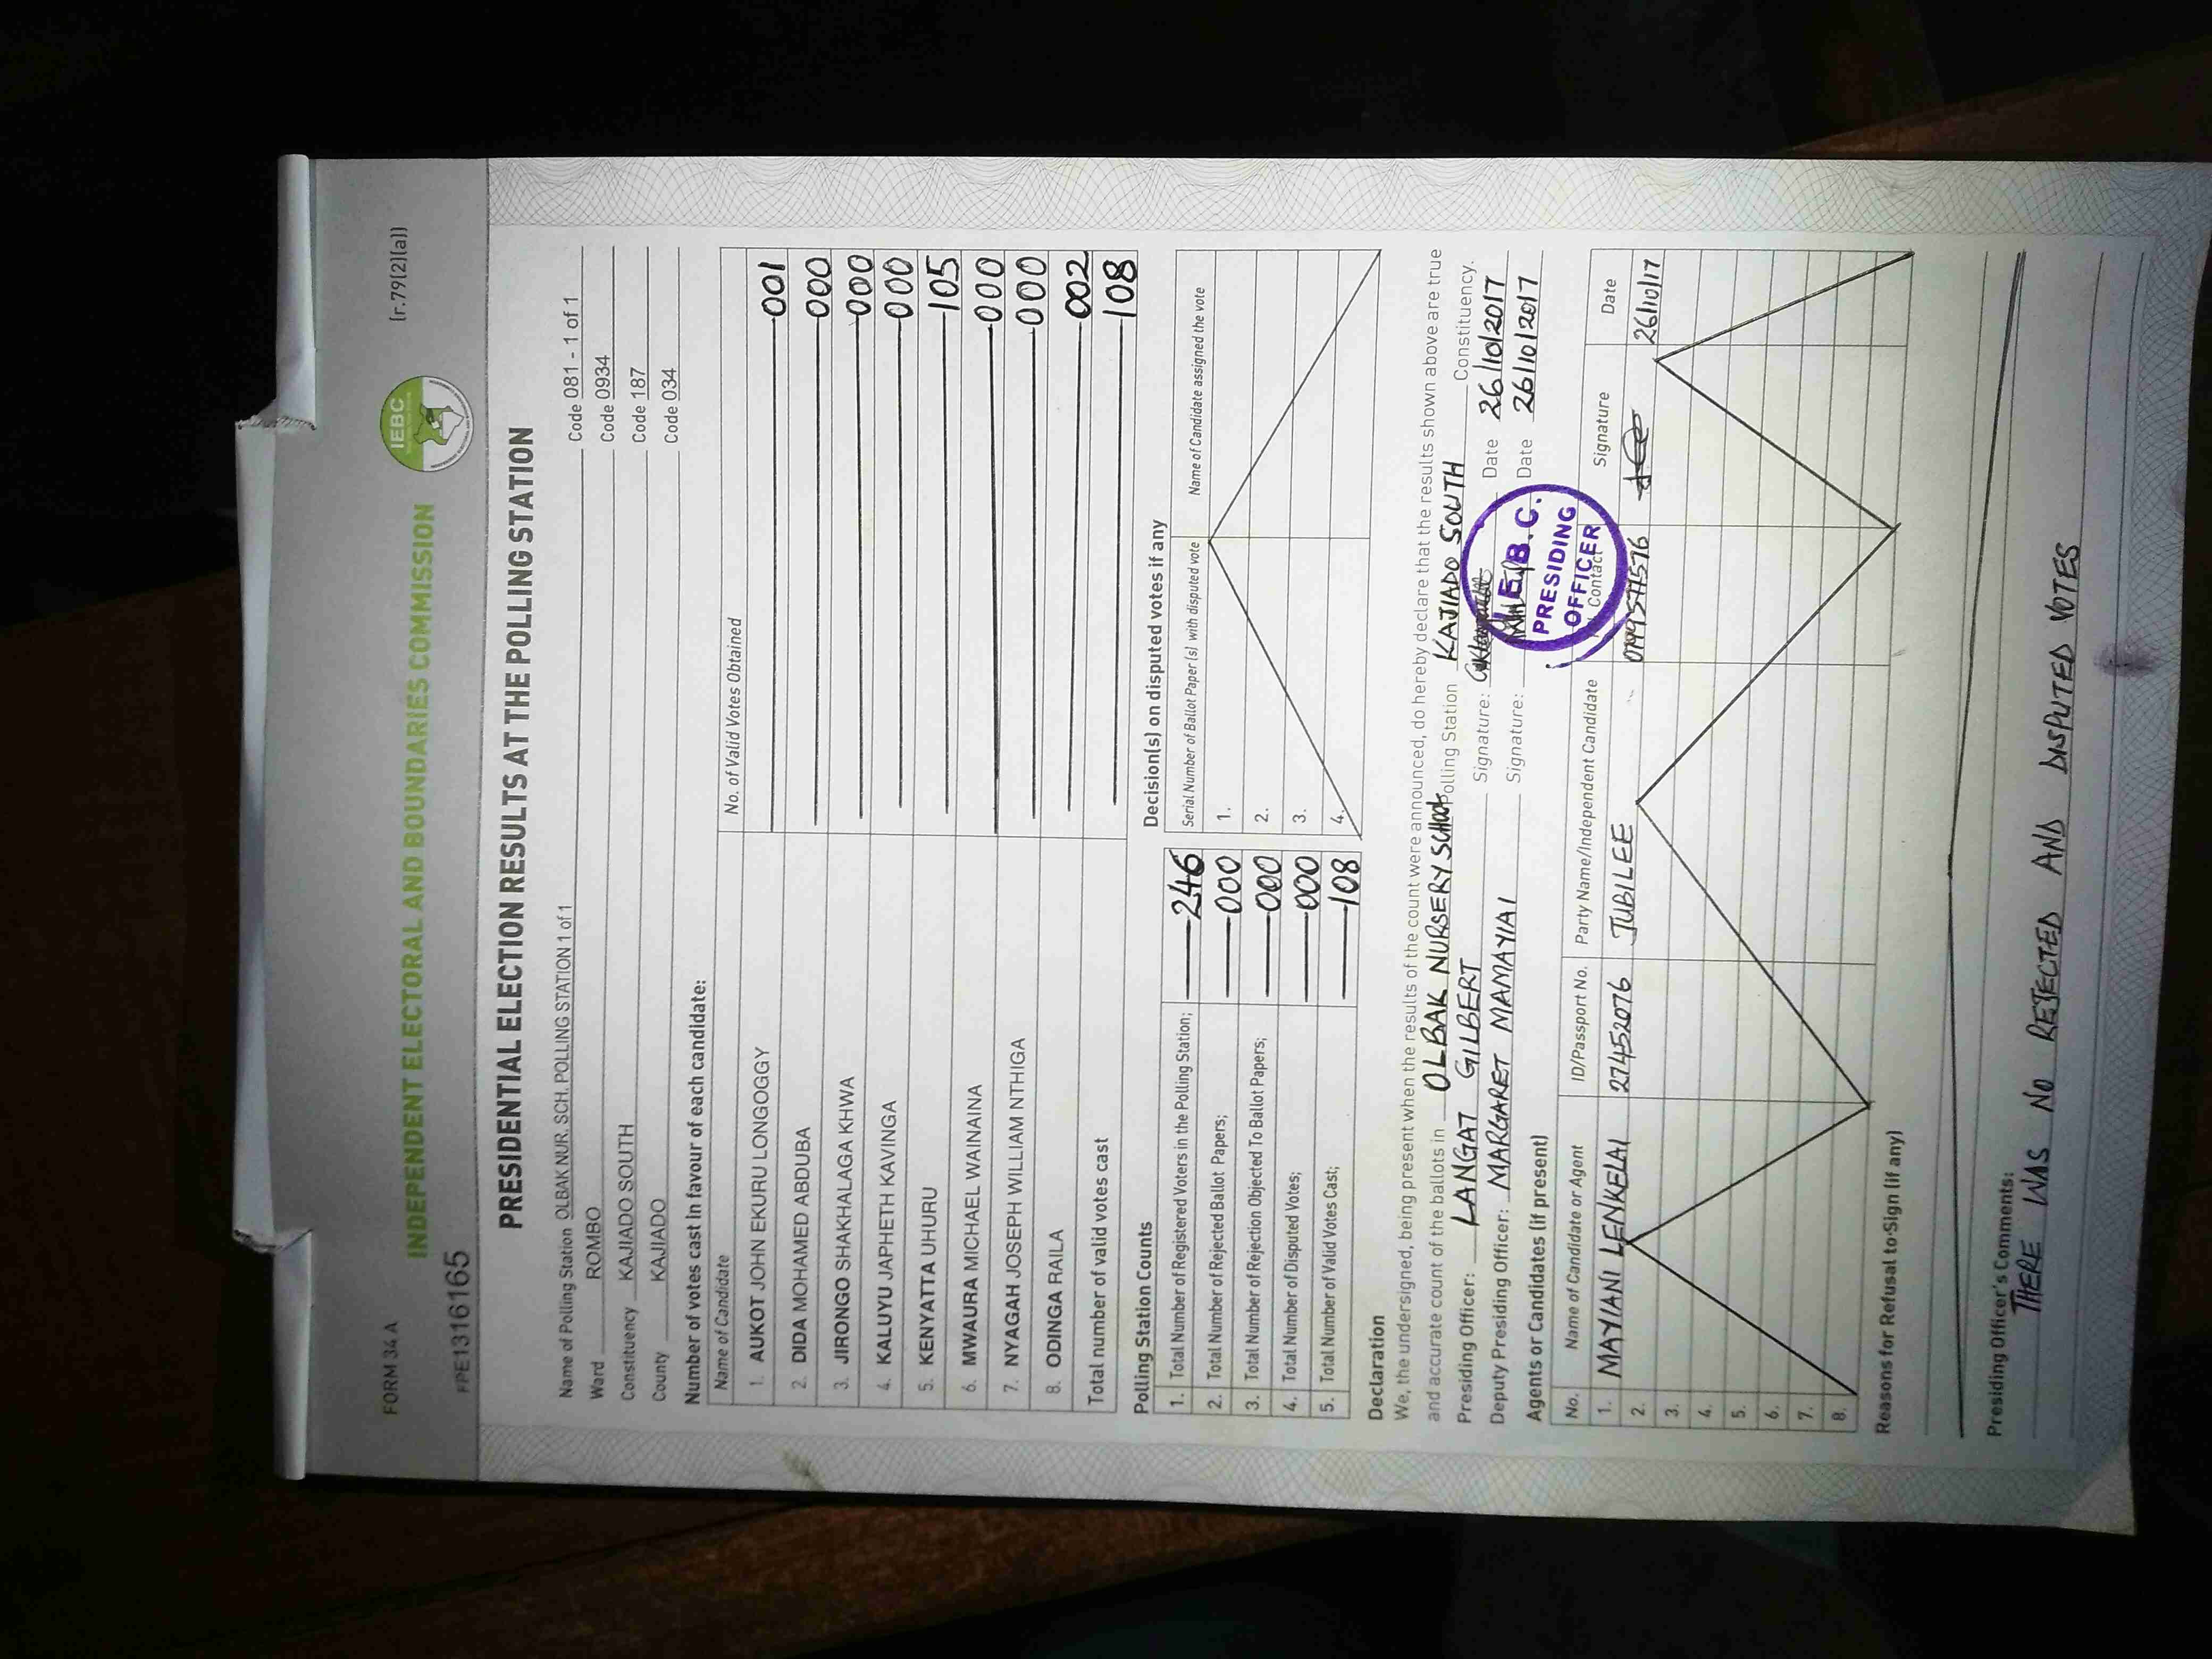 FORM 34 A
(r.79(2)(a))
IEBC
INDEPENDENT ELECTORAL AND BOUNDARIES COMMISSION
FPE1316165
PRESIDENTIAL ELECTION RESULTS AT THE POLLING STATION
Name of Polling Station OLBAK NUR. SCH. POLLING STATION 1 of 1 Code 081 - 1 of 1
Ward ROMBO Code 0934
Constituency KAJIADO SOUTH Code 187
County KAJIADO Code 034
Number of votes cast in favour of each candidate:
Name of Candidate No. of Valid Votes Obtained
1. AUKOT JOHN EKURU LONGOGGY 001
2. DIDA MOHAMED ABDUBA 000
3. JIRONGO SHAKHALAGA KHWA 000
4. KALUYU JAPHETH KAVINGA 000
5. KENYATTA UHURU 105
6. MWAURA MICHAEL WAINAINA 000
7. NYAGAH JOSEPH WILLIAM NTHIGA 000
8. ODINGA RAILA 002
Total number of valid votes cast 108
Polling Station Counts
1. Total Number of Registered Voters in the Polling Station; 246
2. Total Number of Rejected Ballot Papers; 000
3. Total Number of Rejection Objected To Ballot Papers; 000
4. Total Number of Disputed Votes; 000
5. Total Number of Valid Votes Cast; 108
Decision(s) on disputed votes if any
Serial Number of Ballot Paper(s) with disputed vote Name of Candidate assigned the vote
1.
2.
3.
4.
Declaration
We, the undersigned, being present when the results of the count were announced, do hereby declare that the results shown above are true
and accurate count of the ballots in OLBAK NURSERY SCHOOL Polling Station KAJIADO SOUTH Constituency.
Presiding Officer: LANGAT GILBERT Signature: Date 26/10/2017
Deputy Presiding Officer: MARGARET MAMAYIAI Signature: Date 26/10/2017
I.E.B.C.
PRESIDING
OFFICER
Agents or Candidates (if present)
No. Name of Candidate or Agent ID/Passport No. Party Name/Independent Candidate Contact Signature Date
1. MAYIANI LENKELAI 27452076 JUBILEE 26/10/17
2.
3.
4.
5.
6.
7.
8.
Reasons for Refusal to Sign (if any)
Presiding Officer's Comments:
THERE WAS NO REJECTED AND DISPUTED VOTES